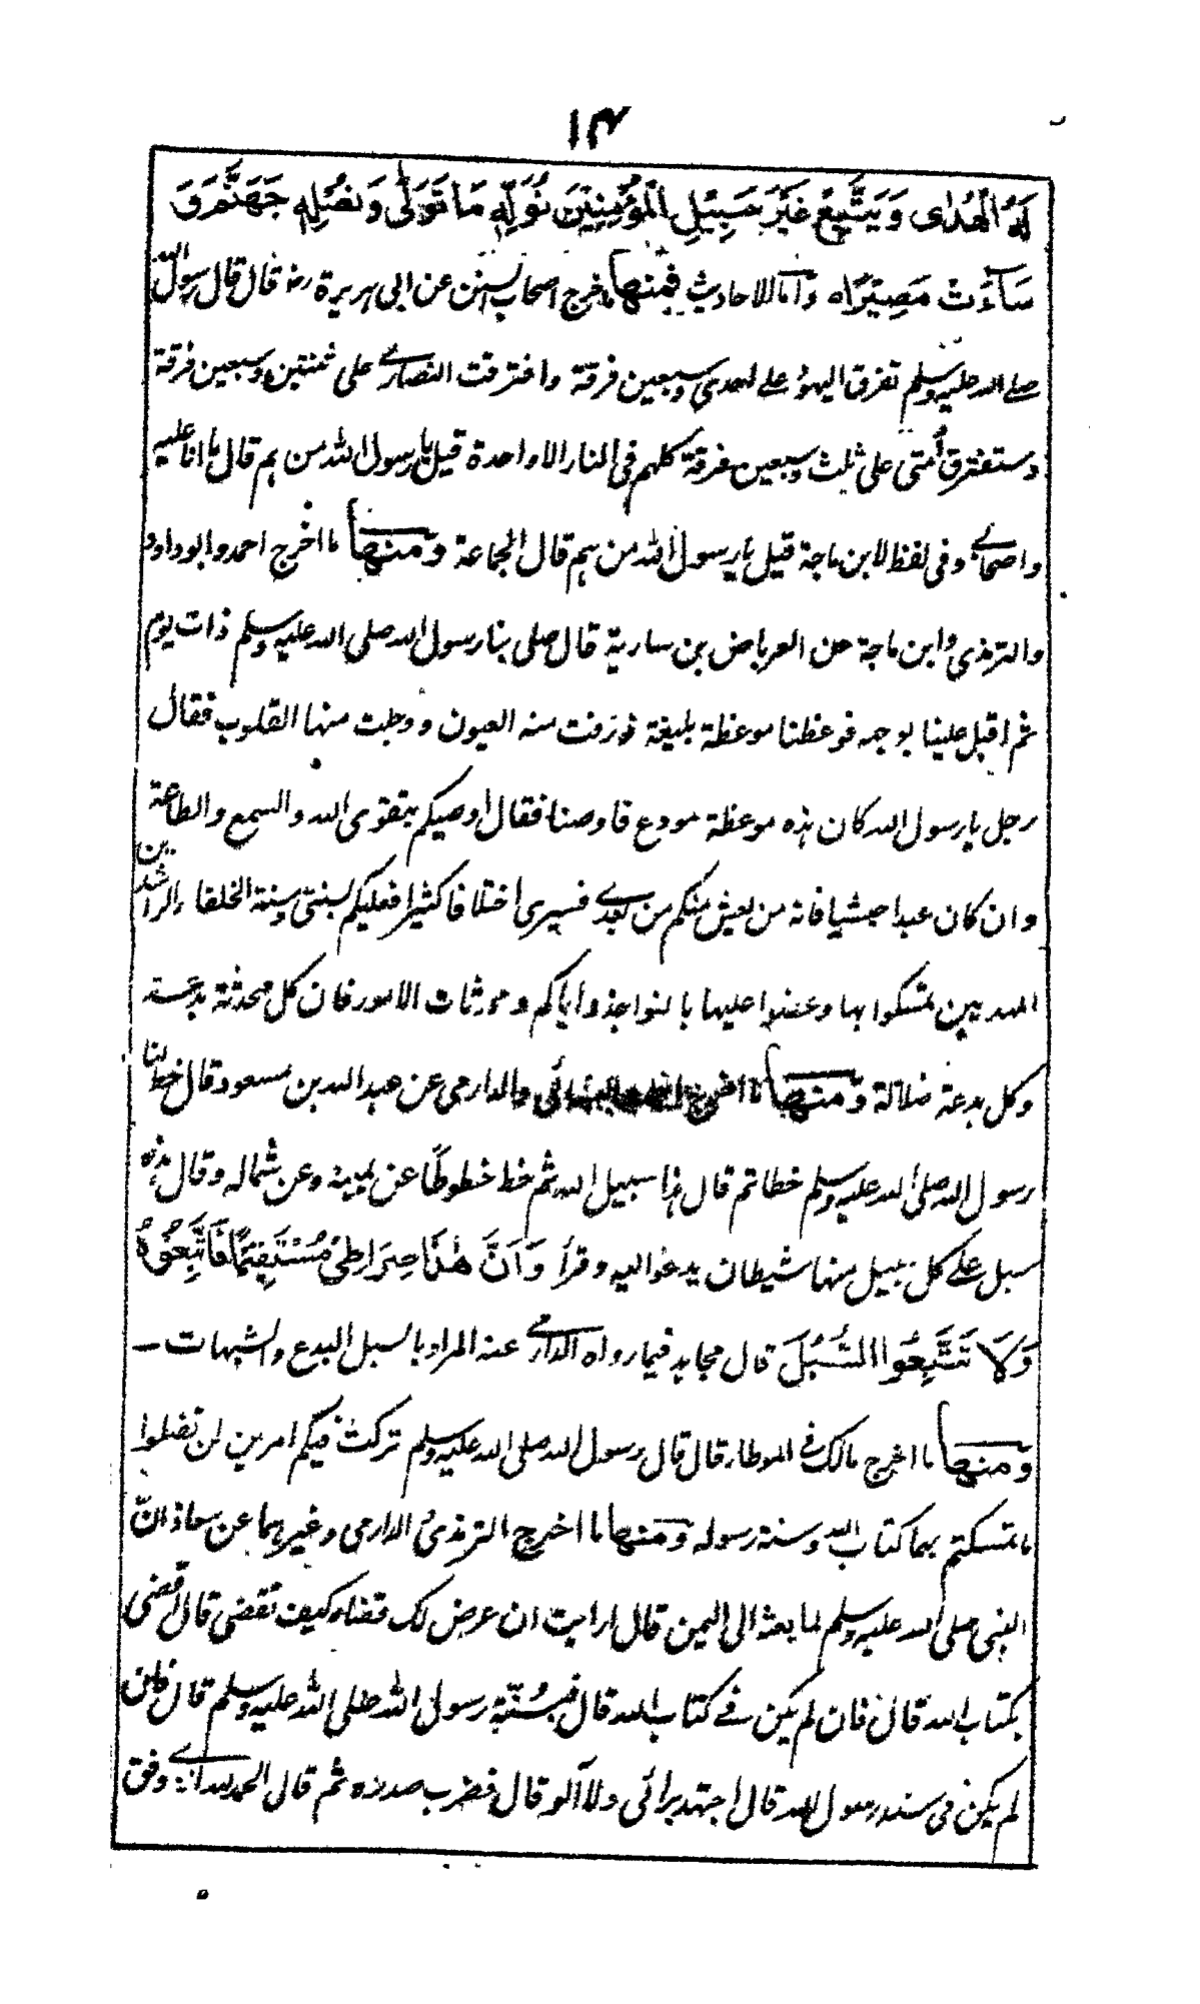 ۱۴
لَهُ الْهُدٰى وَيَتَّبِعْ غَيْرَ سَبِيْلِ الْمُؤْمِنِيْنَ نُوَلِّهٖ مَا تَوَلّٰى وَنُصْلِهٖ جَهَنَّمَ وَ
سَآءَتْ مَصِيْرًا ہ وَاَمّا الاحادیث فمنھا ما خرج اصحاب السنن عن ابی ہریرة رض قال قال رسول اللہ
صلے اللہ علیہ وسلم تفرق الیہود علے احدی وسبعین فرقة وافترقت النصارے علی ثنتین وسبعین فرقة
وستفترق اُمتی علی ثلث وسبعین فرقة کلہم فی النار الا واحدة قیل یا رسول اللہ من ہم قال ما انا علیہ
واصحابے وفی لفظ لابن ماجة قیل یا رسول اللہ من ہم قال الجماعة ومنھا ما اخرج احمد وابوداود
والترمذی وابن ماجة عن العرباض بن ساریة قال صلی بنا رسول اللہ صلی اللہ علیہ وسلم ذات یوم
ثم اقبل علینا بوجہہ فوعظنا موعظة بلیغة ذرفت منہ العیون ووجلت منہا القلوب فقال
رجل یا رسول اللہ کان ہذہ موعظة مودع فاوصنا فقال اوصیکم بتقوی اللہ والسمع والطاعة
وان کان عبدا حبشیا فانہ من یعش منکم من بعدے فسیری اختلافا کثیرا فعلیکم بسنتی وسنة الخلفاء الراشدین
المہدیین تمسکوا بہا وعضوا علیہا بالنواجذ وایاکم ومحدثات الامور فان کل محدثة بدعة
وکل بدعة ضلالة ومنھا ما اخرج احمد والنسائی والدارمی عن عبداللہ بن مسعود قال خط لنا
رسول اللہ صلی اللہ علیہ وسلم خطا ثم قال ہذا سبیل اللہ ثم خط خطوطًا عن یمینہ وعن شمالہ وقال ہذہ
سبل علے کل سبیل منہا شیطان یدعوا الیہ وقرأ وَاَنَّ هٰذَا صِرَاطِيْ مُسْتَقِيْمًا فَاتَّبِعُوْهُ
وَلَا تَتَّبِعُوا السُّبُلَ قال مجاہد فیما رواہ الدارمے عنہ المراد بالسبل البدع والشبہات ــ
ومنھا ما اخرج مالک فی الموطا قال قال رسول اللہ صلی اللہ علیہ وسلم ترکت فیکم امرین لن تضلوا
ما تمسکتم بہما کتاب اللہ وسنة رسولہ ومنھا ما اخرج الترمذی الدارمی وغیرہما عن معاذ انّ
النبی صلی اللہ علیہ وسلم لما بعثہ الی الیمن قال ارایت ان عرض لک قضاء کیف تقضی قال اقضی
بکتاب اللہ قال فان لم یکن فے کتاب اللہ قال فبسُنّة رسول اللہ صلی اللہ علیہ وسلم قال فان
لم یکن فی سنة رسول اللہ قال اجتہد برائی ولا آلو قال فضرب صدرہ ثم قال الحمد للہ الذے وفق